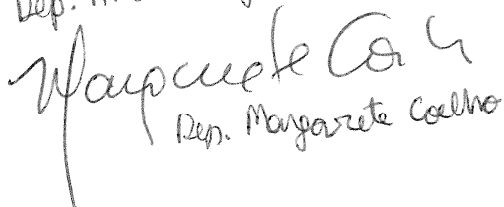 Dep.
Margarete Coelho
Dep. Margarete Coelho